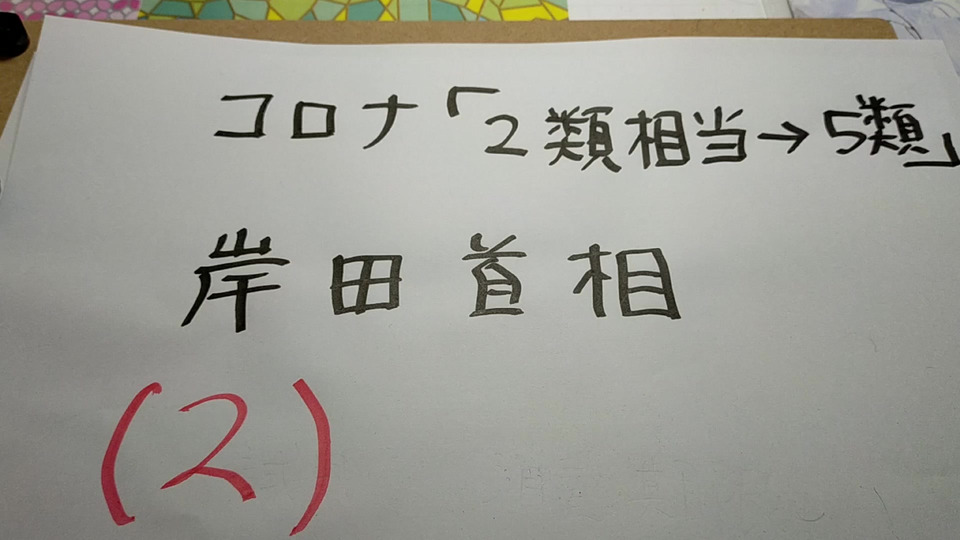 コロナ「2類相当→5類」
岸田首相
(2)